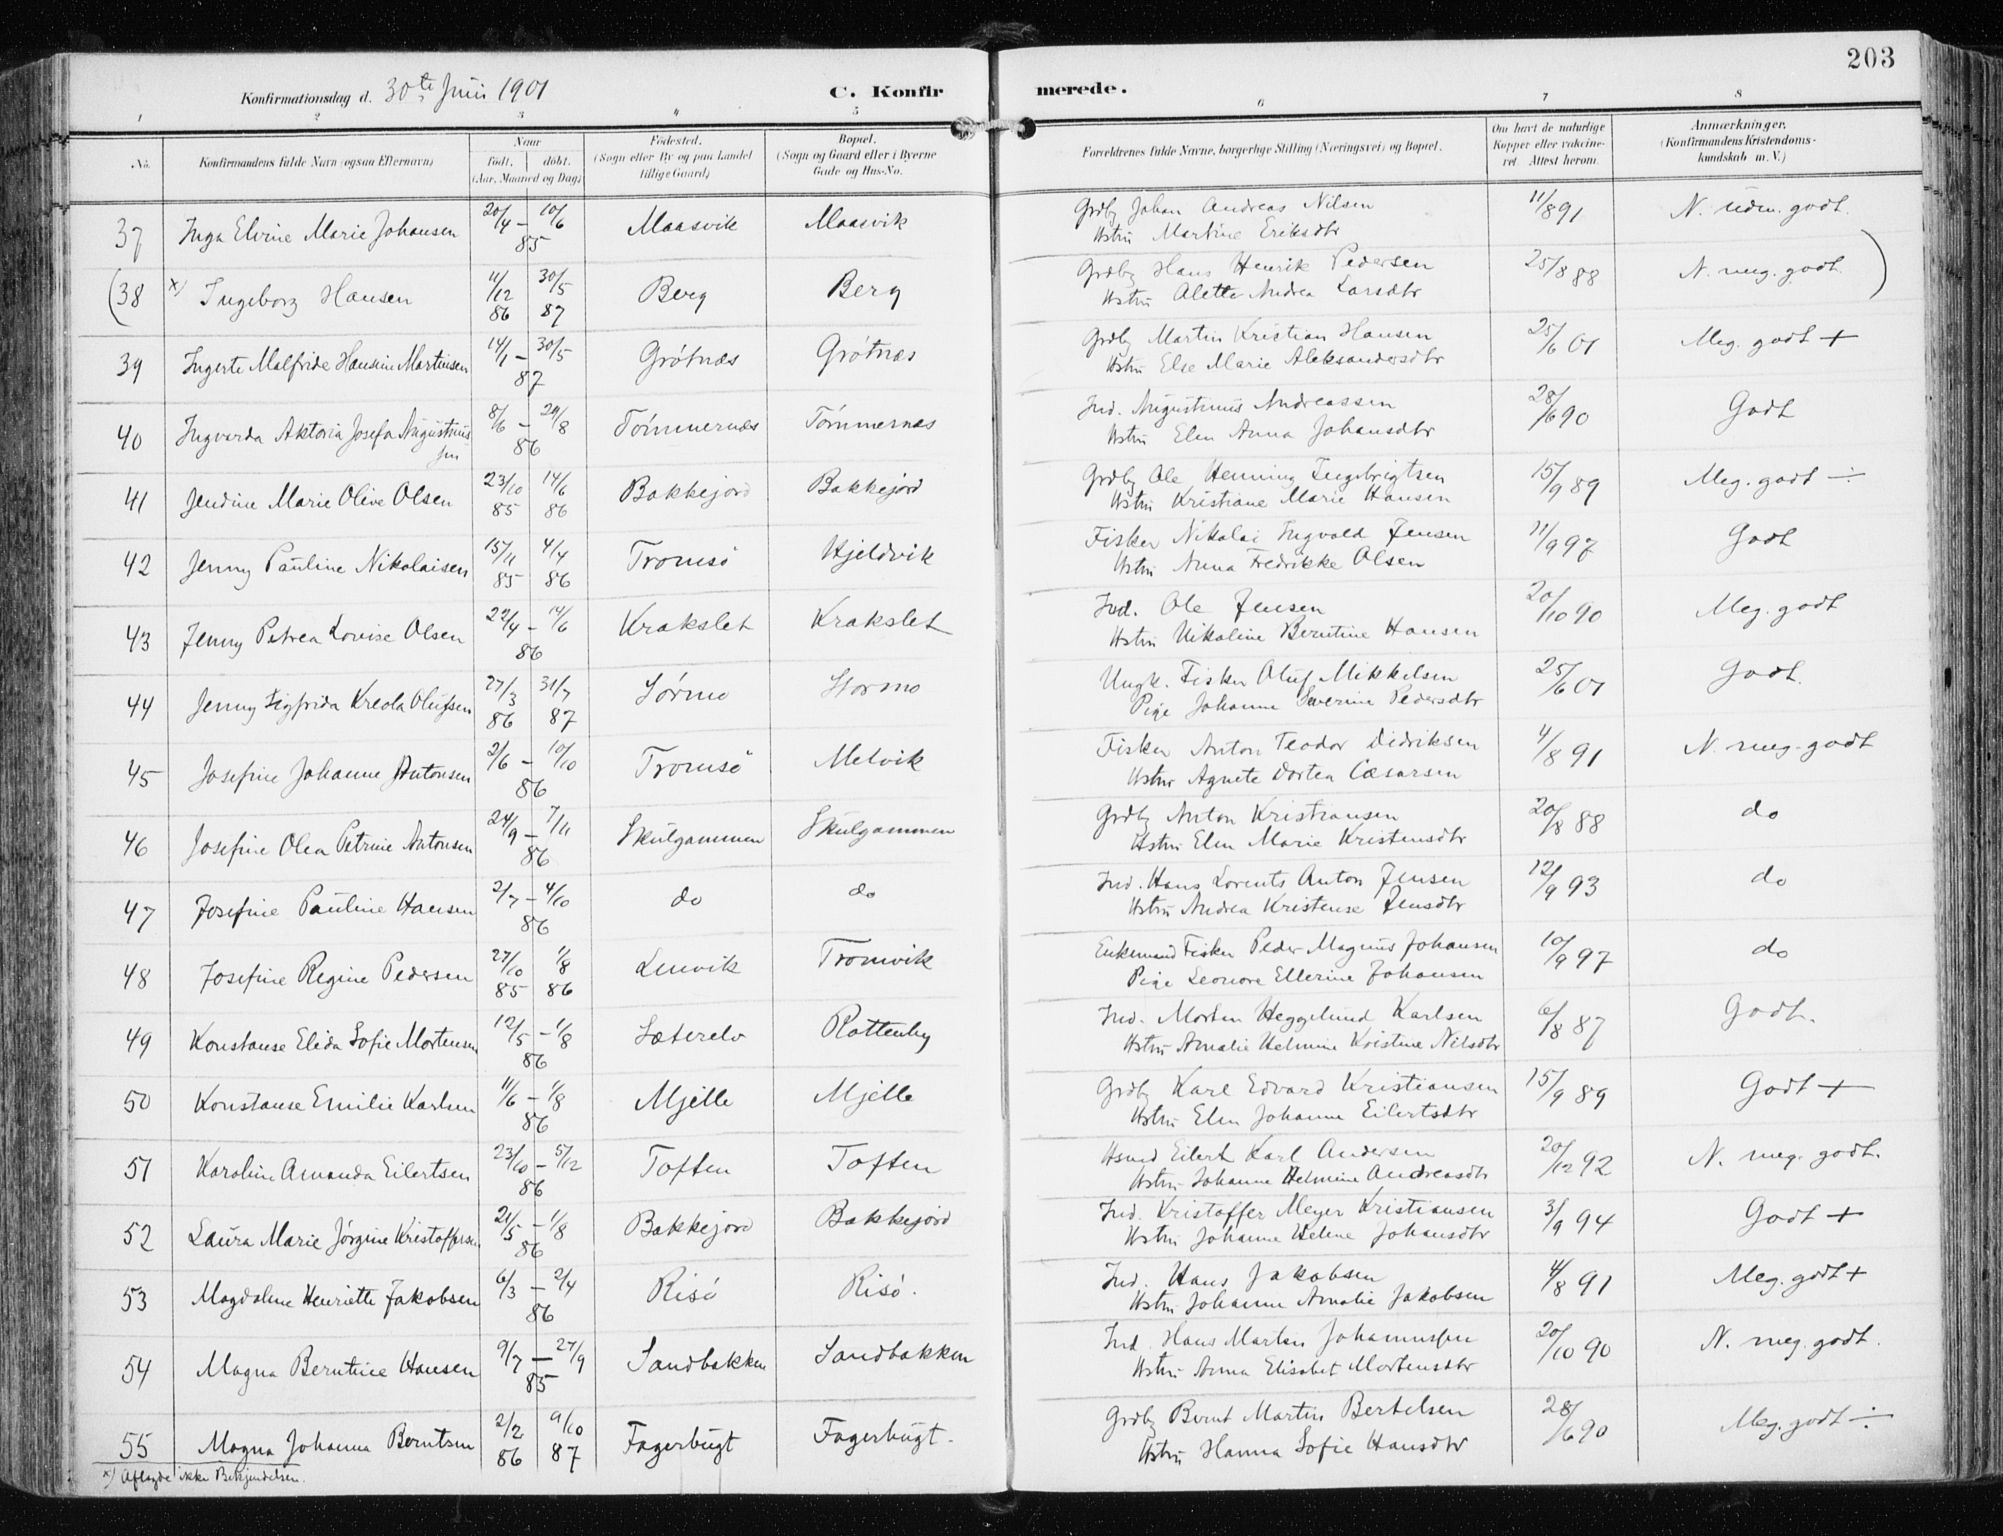 203
Konfirmationsdag d. 30te Juni 1901 C. Konfirmerede.
1 2 3 4 5 6 7 8
No. Konfirmandens fulde Navn (ogsaa Efternavn) Naar født, døbt. (Aar, Maaned og Dag) Fødested. (Sogn eller By og paa Landet tillige Gaard) Bopæl. (Sogn og Gaard eller i Byerne Gade og Hus-No. Forældrenes fulde Navne, borgerlige Stilling (Næringsvei) og Bopæl. Om havt de naturlige Kopper eller vaccineret. Attest herom. Anmærkninger, (Konfirmandens Kristendomskundskab m. V.)
37 Inga Elvine Marie Johansen 20/4 – 10/6 85 Maasvik Maasvik Grdbr Johan Andreas Nilsen 11/8 91 N. udm. godt.
Hstru Martine Eriksdtr
(38 x) Ingeborg Hansen 11/12 86 30/5 87 Berg Berg Grdbr Hans Henrik Pedersen 25/8 88 N. meg. godt. )
Hstru Aletta Andrea Larsdtr
39 Ingerte Malfride Hansine Martinsen 14/1 – 30/5 87 Grötnæs Grötnæs Grdbr Martin Kristian Hansen 25/6 01 Meg. godt +
Hstru Else Marie Aleksandersdtr
40 Ingvarda Aktoria Josefa Augustinussen 8/6 – 29/8 86 Tömmernæs Tömmernæs Ind. Augustinus Andreassen 28/6 90 Godt
Hstru Elen Anna Johansdtr
41 Jendine Marie Olive Olsen 23/10 85 14/6 86 Bakkejord Bakkejord Grdbr Ole Henning Ingebrigtsen 15/9 89 Meg. godt ÷
Hstru Kristiane Marie Hansen
42 Jenny Pauline Nikolaisen 15/11 85 4/4 86 Tromsö Hjeldvik Fisker Nikolai Ingvald Jensen 11/9 97 Godt
Hstru Anna Fredrikke Olsen
43 Jenny Petrea Lovise Olsen 22/4 – 14/6 86 Krakslet Krakslet Ind. Ole Jensen 20/10 90 Meg. godt
Hstru Nikoline Berntine Hansen
44 Jenny Sigfrida Kreola Olufsen 27/3 86 31/7 87 Sörmo Stormo Ungk. Fisker Oluf Mikkelsen 25/6 01 Godt.
Pige Johanna Severine Pedersdtr
45 Josefine Johanne Antonsen 2/6 – 10/10 86 Tromsö Melvik Fisker Anton Teodor Didriksen 4/8 91 N. meg. godt
Hstru Agnete Dortea Cæsarsen
46 Josefine Olea Petrine Antonsen 24/9 – 7/11 86 Skulgammen Skulgammen Grdbr Anton Kristiansen 20/8 88 do
Hstru Elen Marie Kristensdtr
47 Josefine Pauline Hansen 2/7 – 4/10 86 do do Ind. Hans Lorents Anton Jensen 12/9 93 do
Hstru Andrea Kristense Jensdtr
48 Josefine Regine Pedersen 27/10 85 1/8 86 Lenvik Tromvik Enkemand Fisker Peder Magnus Johansen 10/9 97 do
Pige Leonore Ellerine Johansen
49 Konstanse Elida Sofie Mortensen 12/5 – 1/8 86 Sæterelv Rottenby Ind. Morten Heggelund Karlsen 6/8 87 Godt.
Hstru Amalie Helmine Kristine Nilsdtr
50 Konstanse Emilie Karlsen 11/6 – 1/8 86 Mjelle Mjelle Grdbr Karl Edvard Kristiansen 15/9 89 Godt +
Hstru Elen Johanna Eilertsdtr
51 Karoline Amanda Eilertsen 23/10 – 5/12 86 Toften Toften Hsmd Eilert Karl Andersen 20/12 92 N. meg. godt.
Hstru Johanne Helmine Andreasdtr
52 Laura Marie Jörgine Kristoffersen 21/5 – 1/8 86 Bakkejord Bakkejord Ind. Kristoffer Meyer Kristiansen 3/9 94 Godt +
Hstru Johanna Helene Johansdtr
53 Magdalene Henriette Jakobsen 6/3 – 2/4 86 Risö Risö. Ind. Hans Jakobsen 4/8 91 Meg. godt +
Hstru Johanna Amalie Jakobsen
54 Magna Berntine Hansen 9/7 – 27/9 85 Sandbakken Sandbakken Ind. Hans Martin Johannesen 20/10 90 N. meg. godt.
Hstru Anna Elisabet Mortensdtr
55 Magna Johanna Berntsen 2/2 86 9/10 87 Fagerbugt Fagerbugt. Grdbr Bernt Martin Bertelsen 28/6 90 Meg. godt ÷
Hstru Hanna Sofie Hansdtr
x) Aflagde ikke Bekjendelsen.